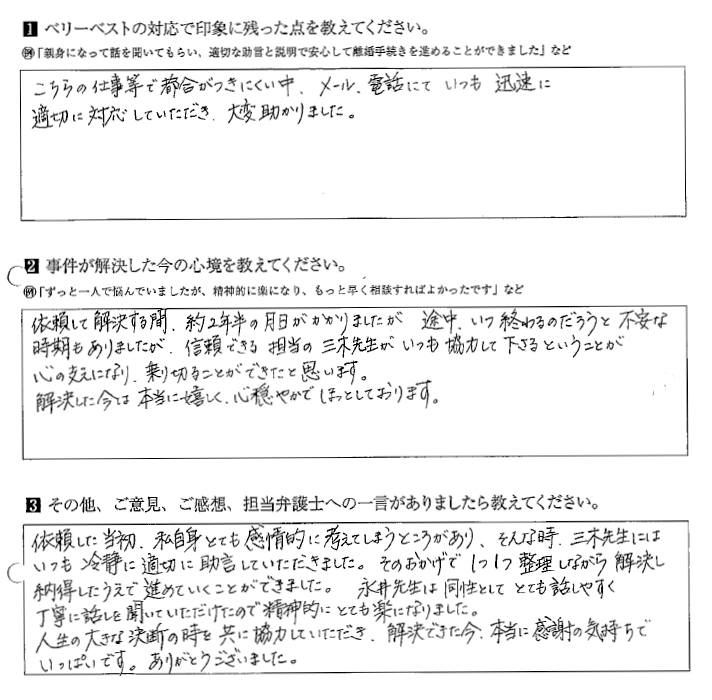 1 ベリーベストの対応で印象に残った点を教えてください。
例「親身になって話を聞いてもらい、適切な助言と説明で安心して離婚手続きを進めることができました」など
こちらの仕事等で都合がつきにくい中、メール、電話にて いつも 迅速に
適切に対応していただき、大変助かりました。
2 事件が解決した今の心境を教えてください。
例「ずっと一人で悩んでいましたが、精神的に楽になり、もっと早く相談すればよかったです」など
依頼して解決する間、約2年半の月日がかかりましたが 途中、いつ終わるのだろうと 不安な
時期もありましたが、信頼できる 担当の 三木先生が いつも 協力して下さるということが
心の支えになり、乗り切ることができたと思います。
解決した今は 本当に嬉しく、心穏やかで ほっとしております。
3 その他、ご意見、ご感想、担当弁護士への一言がありましたら教えてください。
依頼した当初、私自身とても感情的に考えてしまうところがあり、そんな時、三木先生には
いつも 冷静に適切に助言していただきました。そのおかげで 1つ1つ整理しながら 解決し
納得したうえで進めていくことができました。 永井先生は同性として とても話しやすく
丁寧に話しを聞いていただけたので精神的にとても楽になりました。
人生の大きな決断の時を共に協力していただき、解決できた今、本当に感謝の気持ちで
いっぱいです。ありがとうございました。